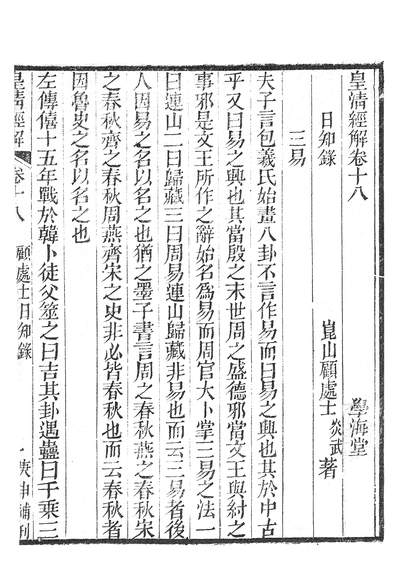 皇清經解卷十八
學海堂
日知錄
崑山顧處士炎武著
三易
夫子言包羲氏始畫八卦不言作易而曰易之興也其於中古
乎又曰易之興也其當殷之末世周之盛德邪當文王與紂之
事邪是文王所作之辭始名為易而周官大卜掌三易之法一
曰連山二曰歸藏三曰周易連山歸藏非易也而云三易者後
人因易之名以名之也猶之墨子書言周之春秋燕之春秋宋
之春秋齊之春秋周燕齊宋之史非必皆春秋也而云春秋者
因魯史之名以名之也
左傳僖十五年戰於韓卜徒父筮之曰吉其卦遇蠱曰千乘三
皇清經解
卷十八
顧處士日知錄
一
庚申補刊